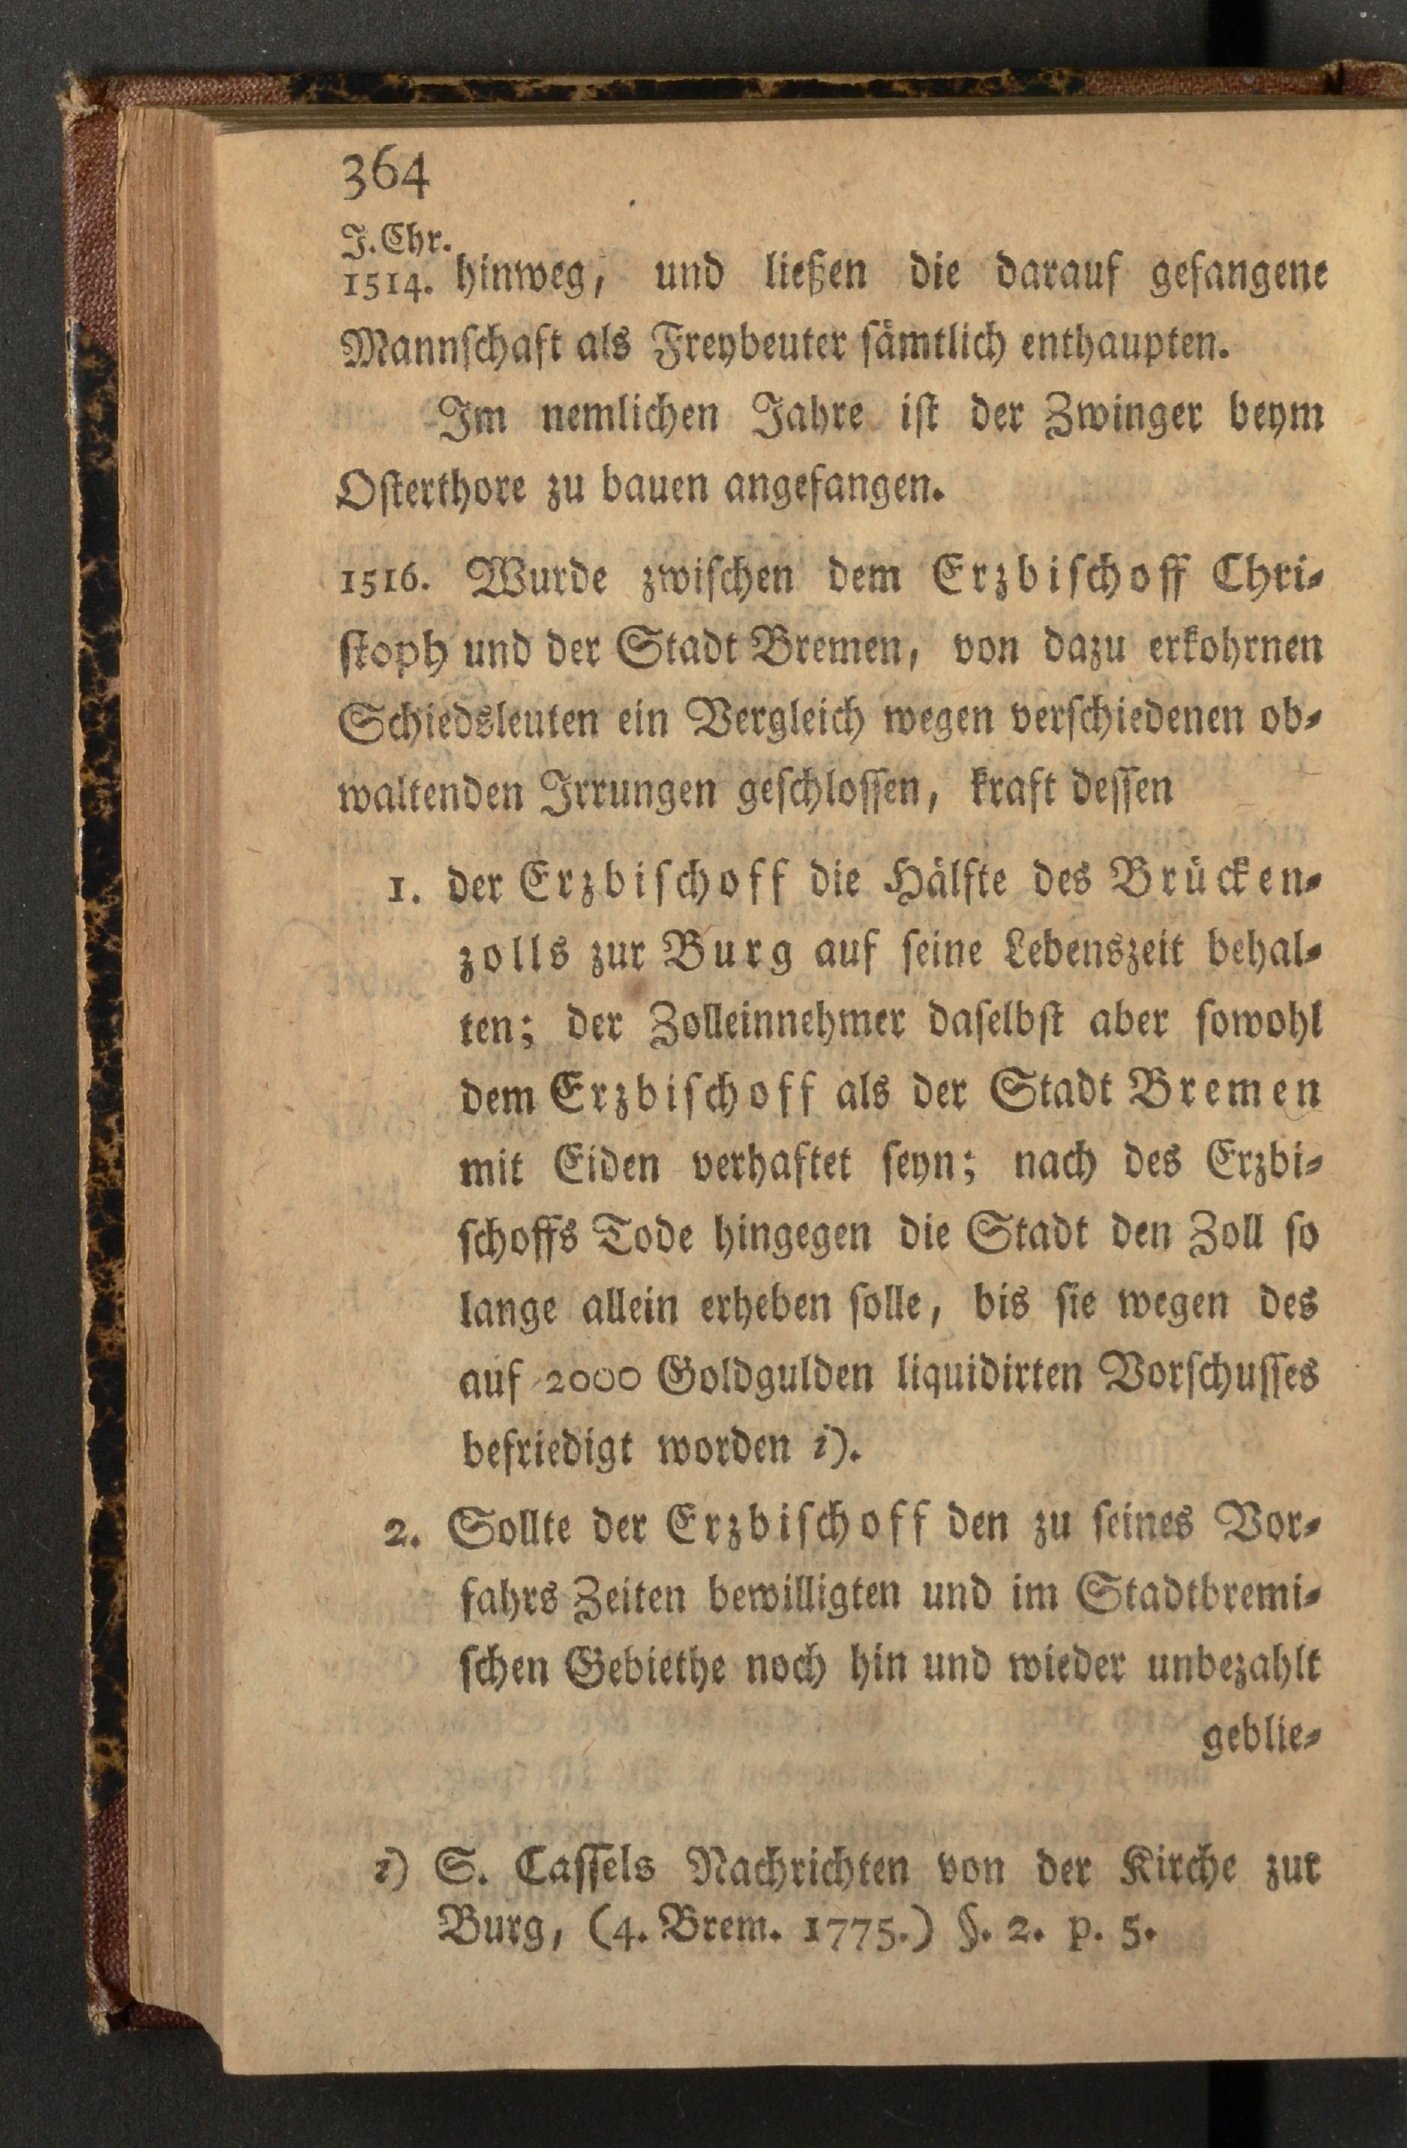 364
J. Chr.
1514. hinweg, und ließen die darauf gefangene
Mannschaft als Freybeuter sämtlich enthaupten.
Im nemlichen Jahre ist der Zwinger beym
Osterthore zu bauen angefangen.
1516. Wurde zwischen dem Erzbischoff Chri-
stoph und der Stadt Bremen, von dazu erkohrnen
Schiedsleuten ein Vergleich wegen verschiedenen ob-
waltenden Irrungen geschlossen, kraft dessen
1. der Erzbischoff die Hälfte des Brücken-
zolls zur Burg auf seine Lebenszeit behal-
ten; der Zolleinnehmer daselbst aber sowohl
dem Erzbischoff als der Stadt Bremen
mit Eiden verhaftet seyn; nach des Erzbi-
schoffs Tode hingegen die Stadt den Zoll so
lange allein erheben solle, bis sie wegen des
auf 2000 Goldgulden liquidirten Vorschusses
befriedigt worden i).
2. Sollte der Erzbischoff den zu seines Vor-
fahrs Zeiten bewilligten und im Stadtbremi-
schen Gebiethe noch hin und wieder unbezahlt
geblie-
i) S. Cassels Nachrichten von der Kirche zur
Burg, (4. Brem. 1775.) §. 2. p. 5.